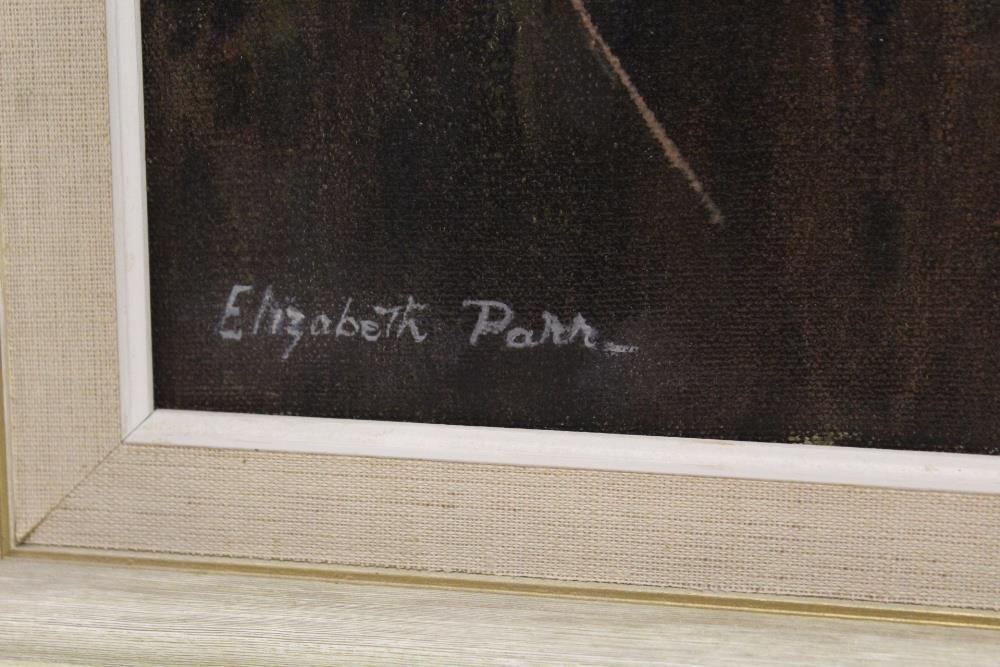 Elizabeth Parr